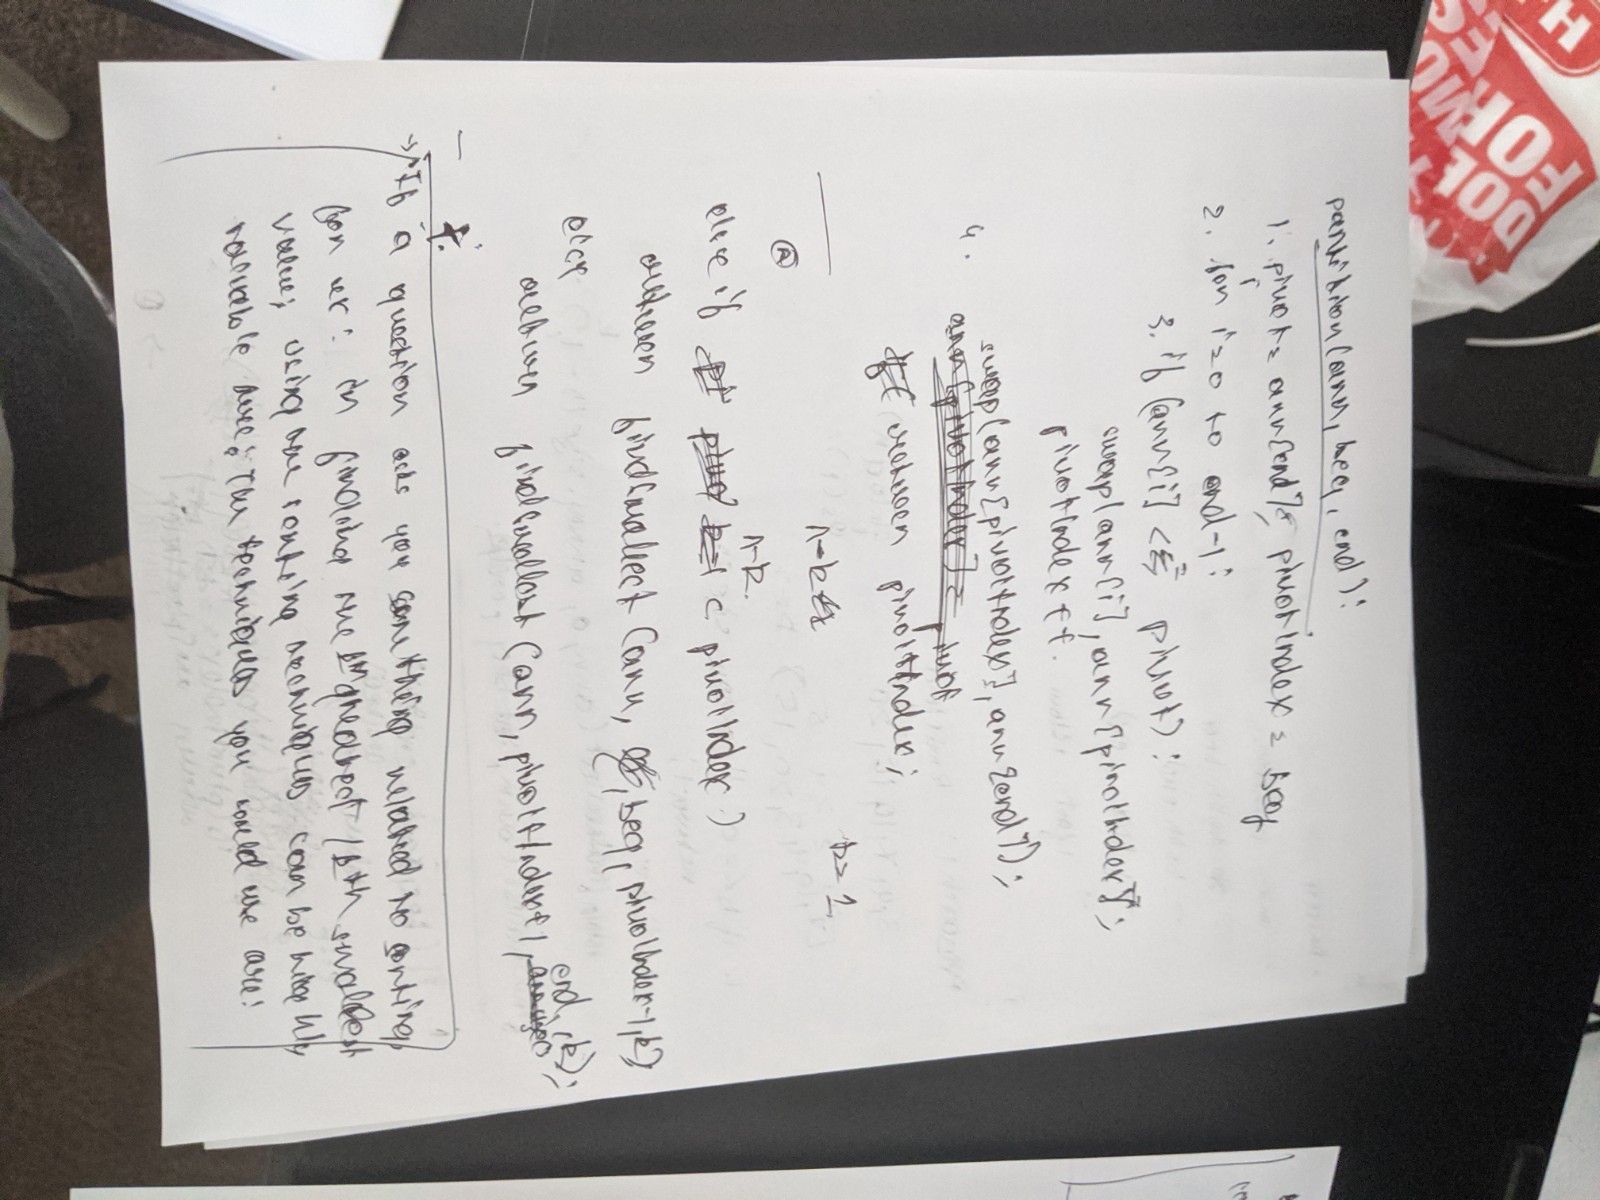 partition(arr, beg, end):
1. pivot = arr[end]; pivotIndex = beg
2. for i=0 to end-1:
3. if (arr[i] <= pivot):
swap(arr[i], arr[pivotIndex]);
pivotIndex++.
4. swap(arr[pivotIndex], arr[end]);
arr[pivotIndex] = pivot
return pivotIndex;
n-k
k=1
n-k.
else if < pivotIndex)
return findSmallest (arr, beg, pivotIndex-1, k)
else
return findSmallest (arr, pivotIndex+1, end, k);
→ If a question asks you something related to sorting,
for ex: in finding the kth greatest / kth smallest
values, using the sorting techniques can be highly
valuable here. The techniques you could use are:
DO IT
FOR